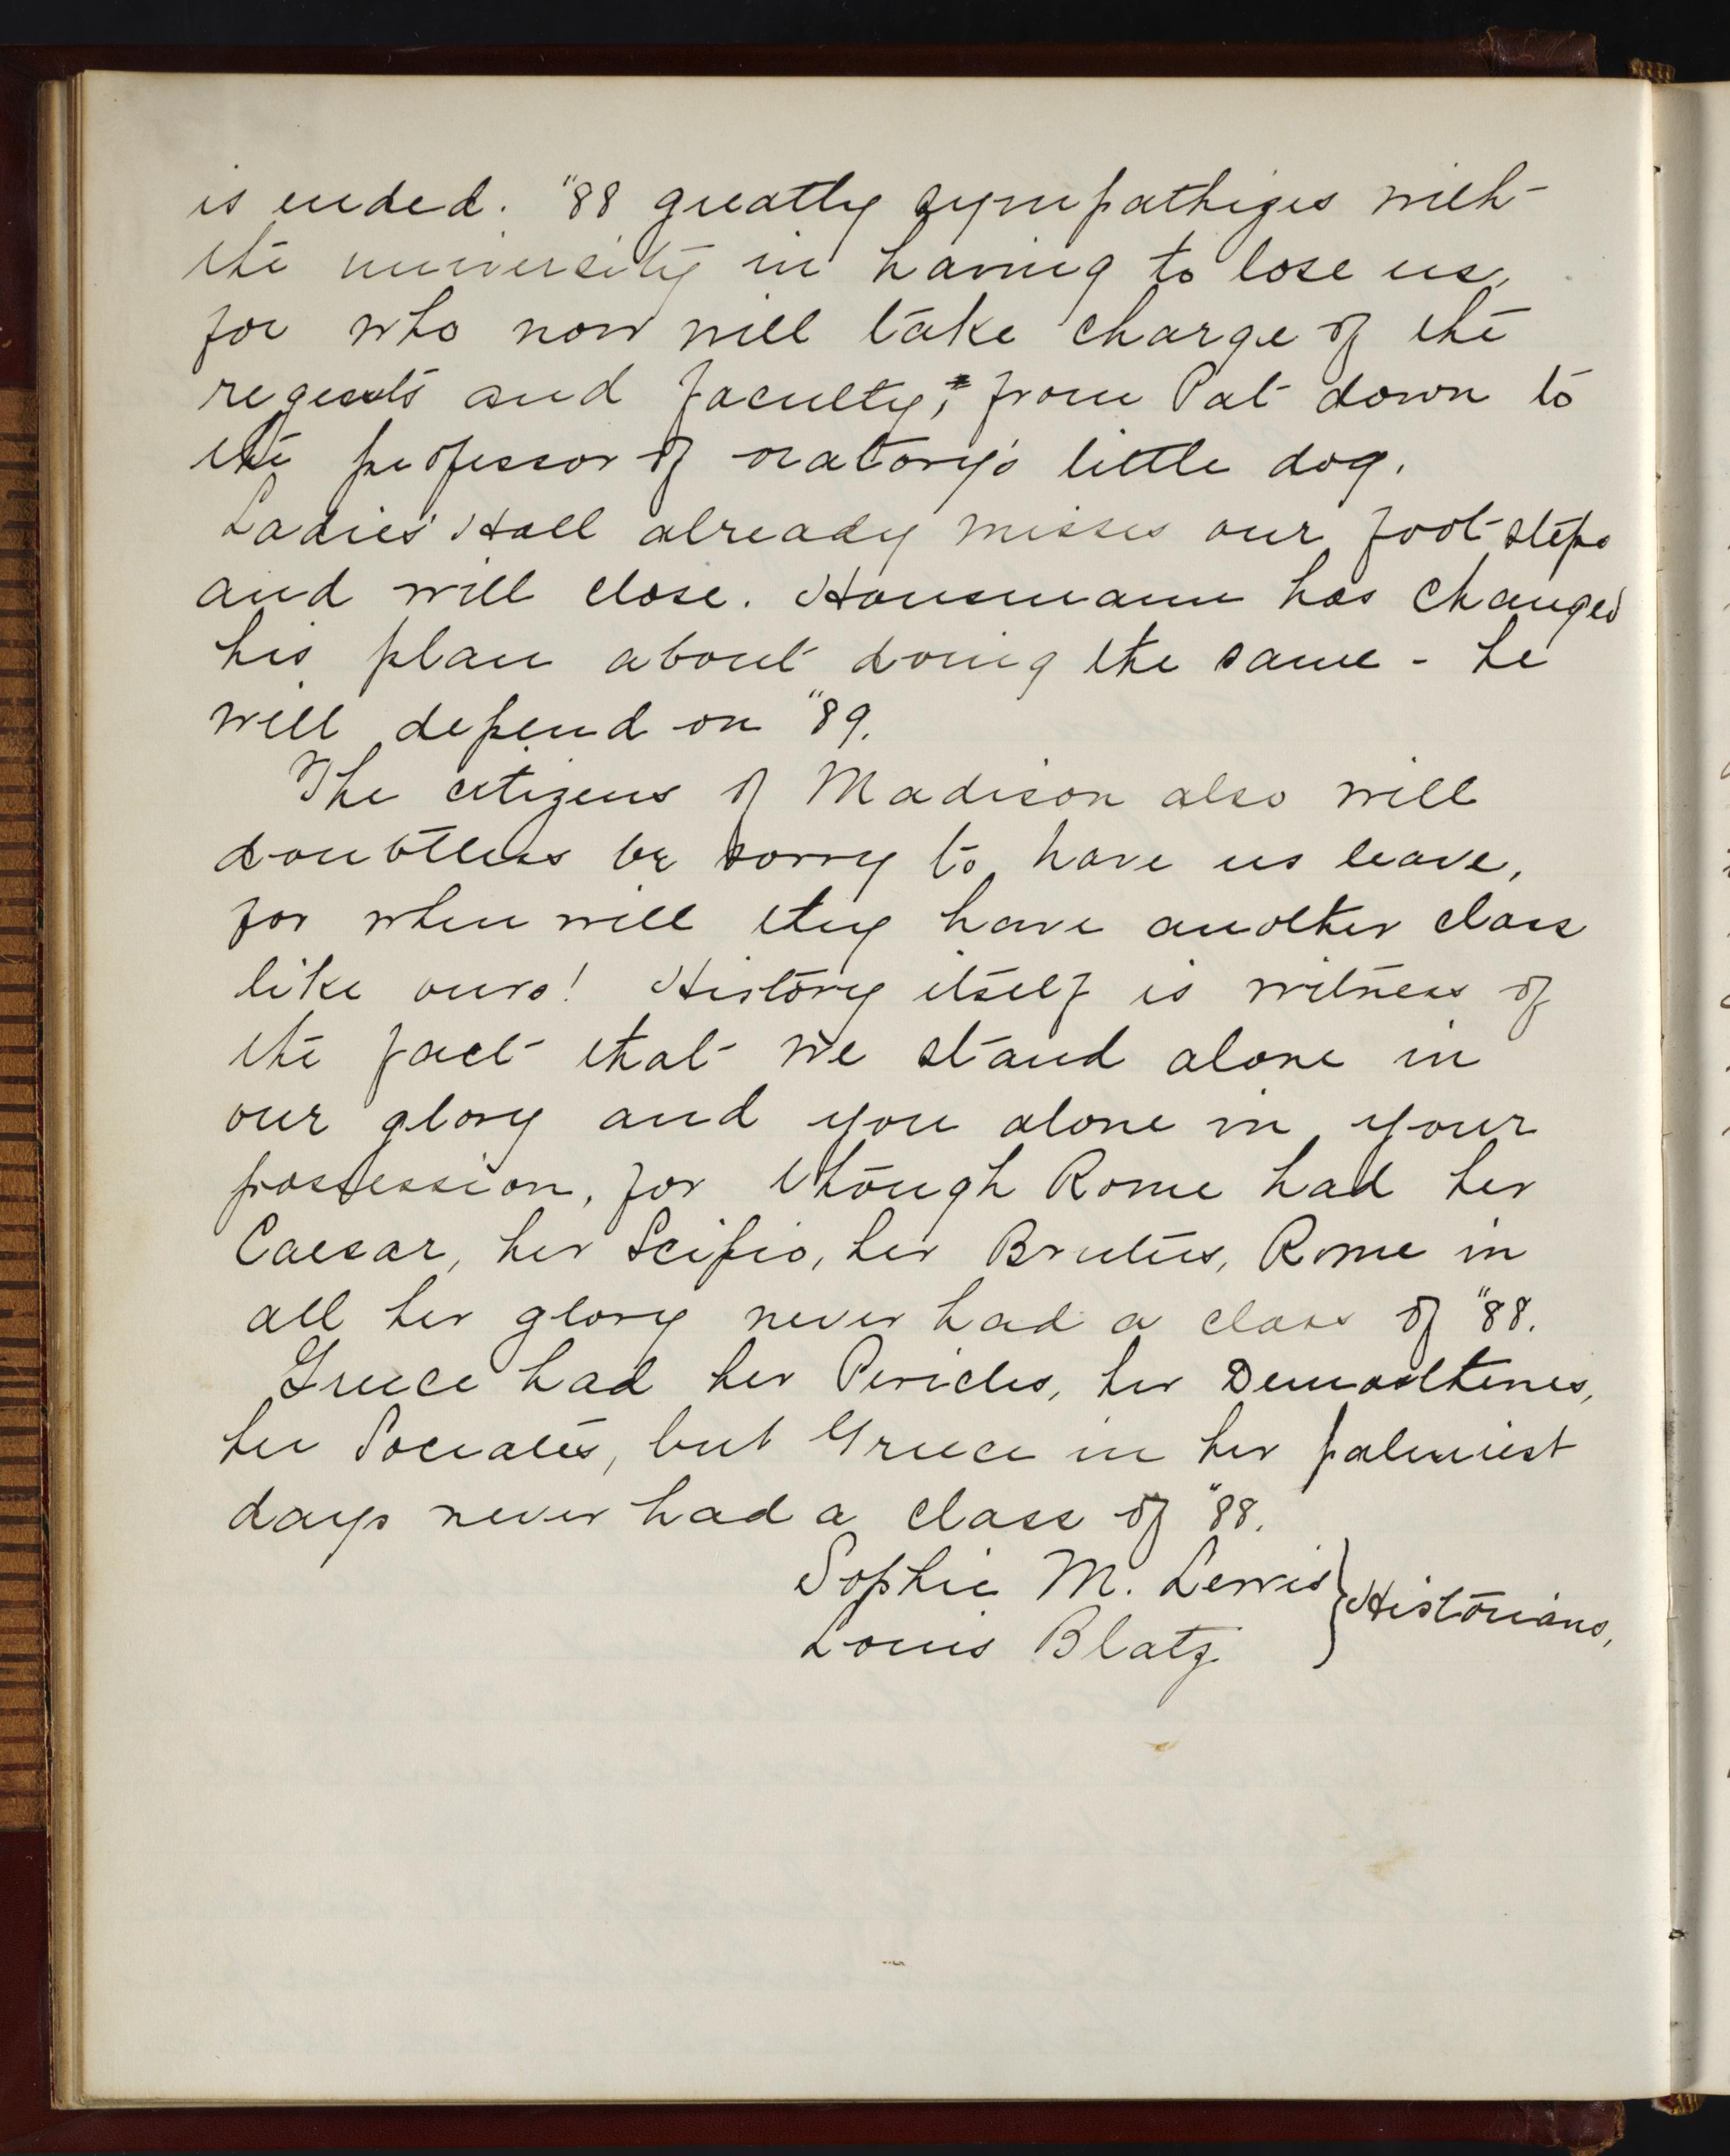 is ended. "88 greatly sympathizes with
the university in having to lose us,
for who now will take charge of the
regents and faculty, from Pat down to
the professor of oratory's little dog.
Ladies' Hall already misses our foot steps
and will close. Hausmann has changed
his plan about doing the same - he
will depend on "89.
The citizens of Madison also will
doubtless be sorry to have us leave,
for when will they have another class
like ours! History itself is witness of
the fact that we stand alone in
our glory and you alone in your
possession, for though Rome had her
Caesar, her Scipio, her Brutus, Rome in
all her glory never had a class of "88.
Greece had her Pericles, her Demosthenes,
her Socrates, but Greece in her palmiest
days never had a class of "88.
Sophie M. Lewis
Louis Blatz } Historians,